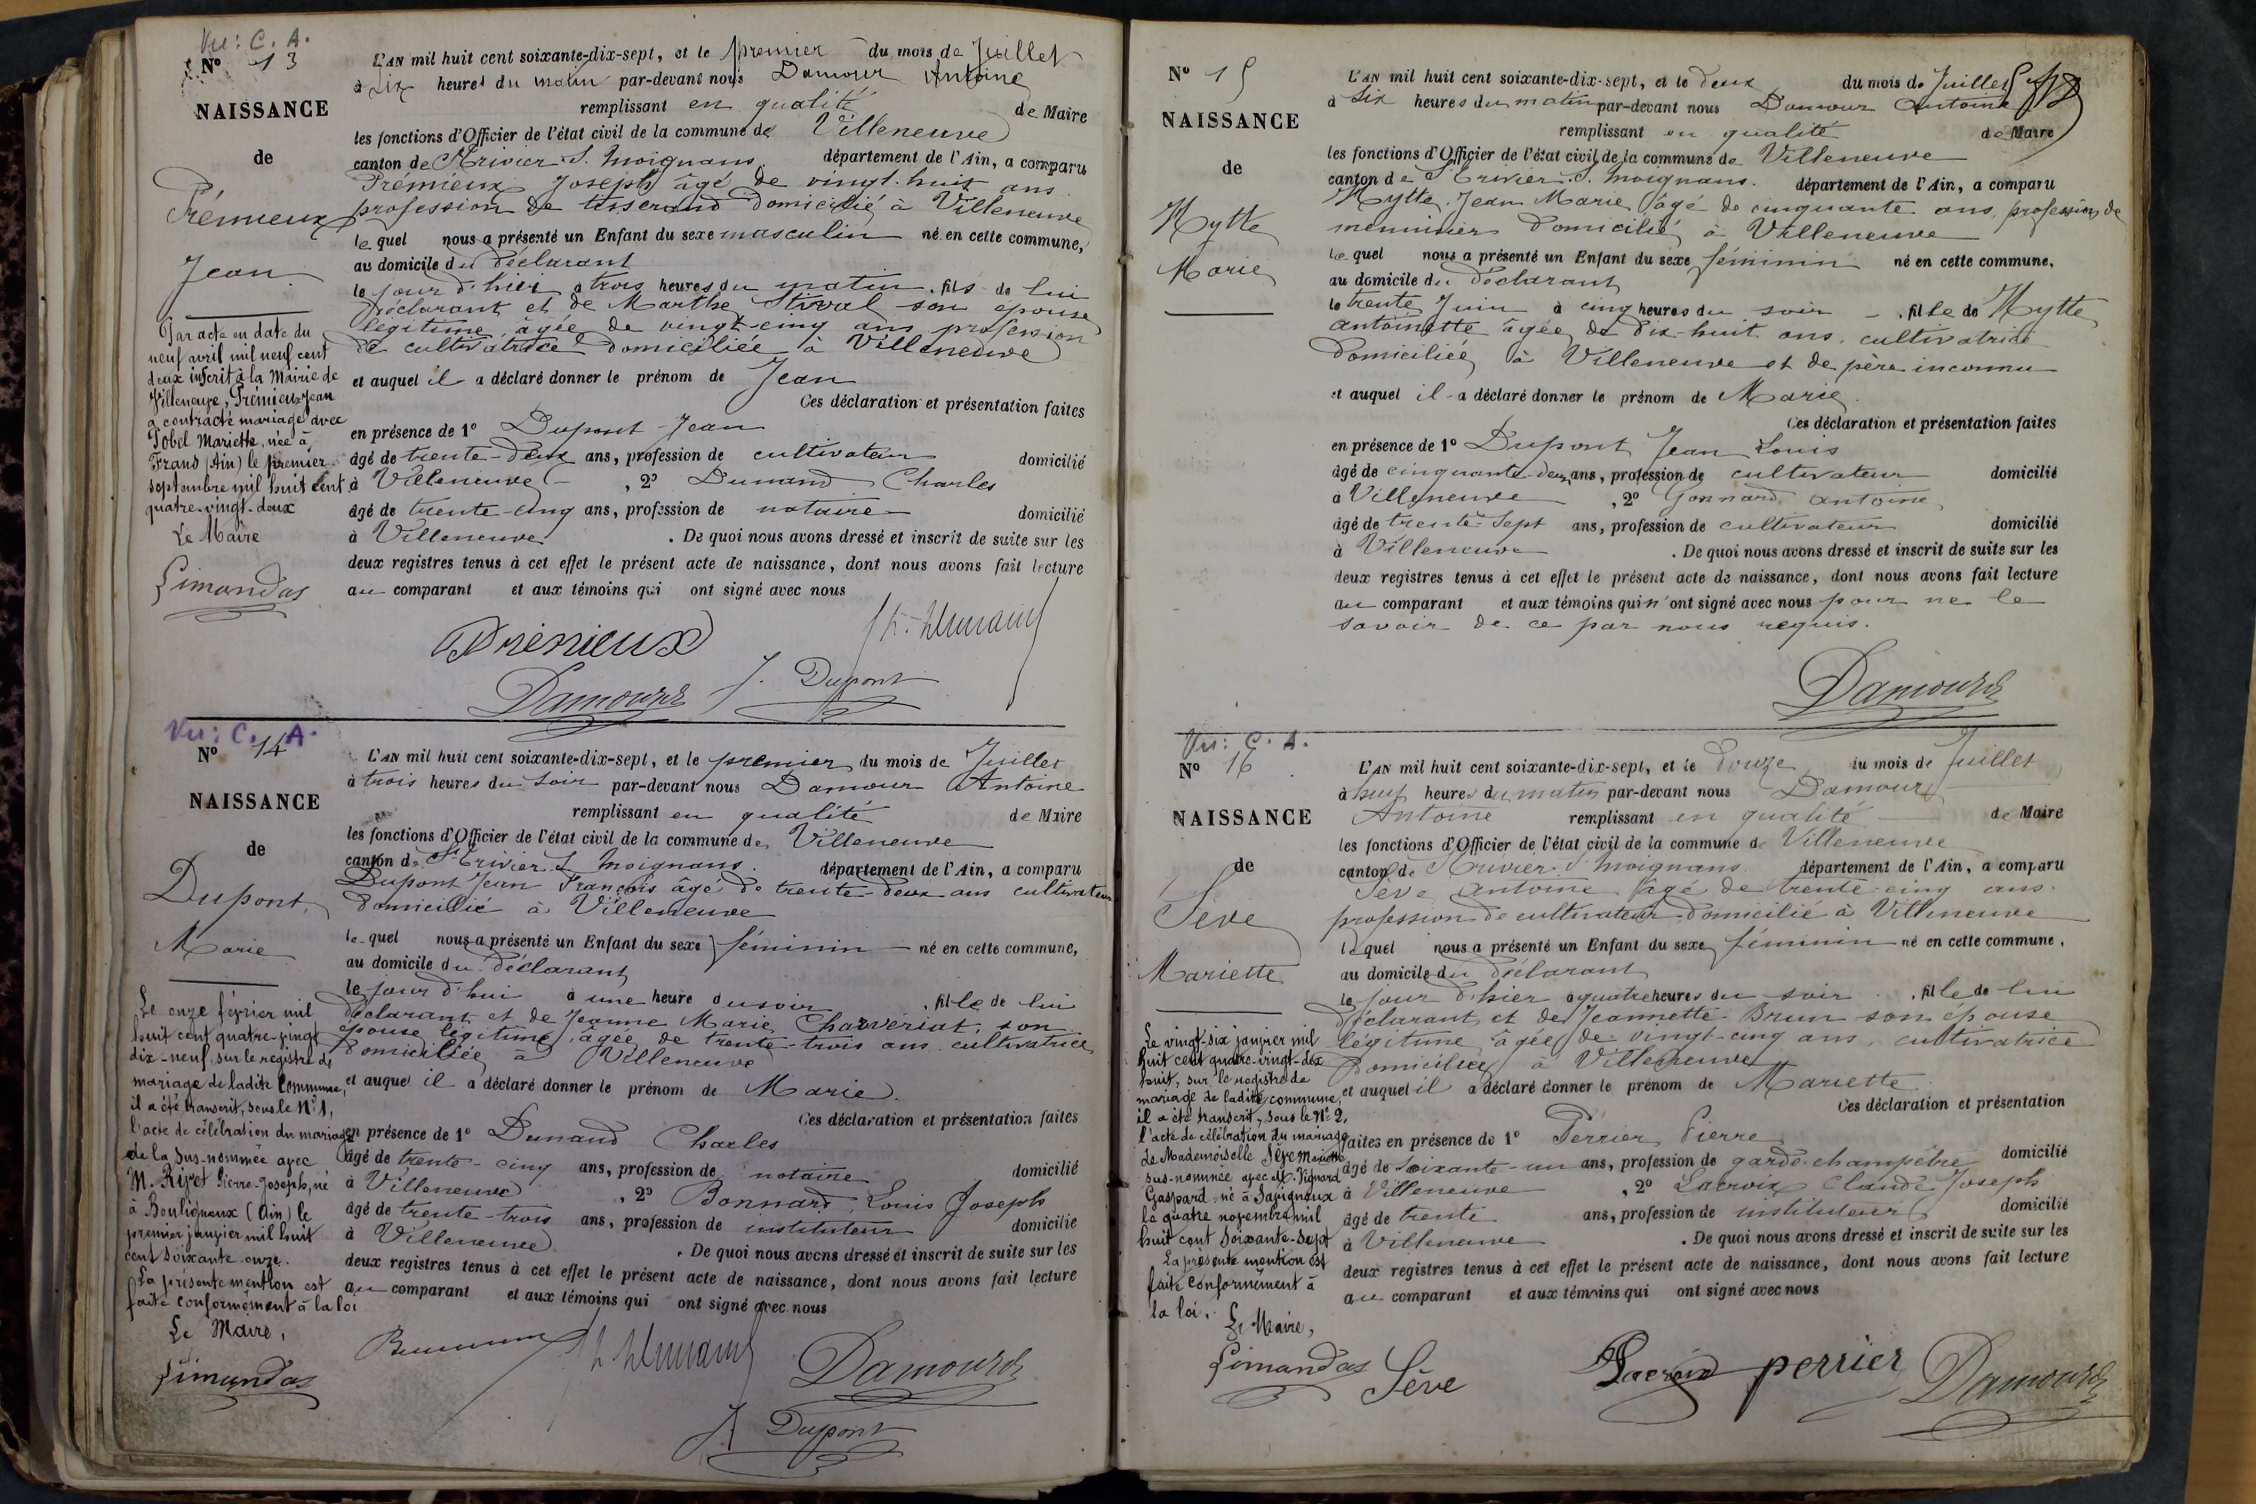 Vu : C. A.
N° 13
NAISSANCE
de
Prémieux
Jean
Par acte en date du
neuf avril mil neuf cent
deux inscrit à la Mairie de
Villeneuve, Prémieux Jean
a contracté mariage avec
Tobel Mariette, née à
Frans (Ain) le premier
septembre mil huit cent
quatre-vingt-deux
Le Maire
Limandas
L'AN mil huit cent soixante-dix-sept, et le premier du mois de Juillet
à six heures du matin par-devant nous Damour Antoine
remplissant en qualité de Maire
les fonctions d'Officier de l'état civil de la commune de Villeneuve
canton de St Trivier S. Moignans. département de l'Ain, a comparu
Prémieux Joseph âgé de vingt-huit ans
profession de tisserand domicilié à Villeneuve
lequel nous a présenté un Enfant du sexe masculin né en cette commune,
au domicile du déclarant
le jour d'hier à trois heures du matin, fils de lui
déclarant et de Marthe son épouse
légitime, âgée de vingt-cinq ans profession
de cultivatrice domiciliée à Villeneuve
et auquel il a déclaré donner le prénom de Jean
Ces déclaration et présentation faites
en présence de 1° Dupont Jean
âgé de trente-deux ans, profession de cultivateur domicilié
à Villeneuve, 2° Dunand Charles
âgé de trente-cinq ans, profession de notaire domicilié
à Villeneuve. De quoi nous avons dressé et inscrit de suite sur les
deux registres tenus à cet effet le présent acte de naissance, dont nous avons fait lecture
au comparant et aux témoins qui ont signé avec nous
Prémieux
Ch. Dunand
Damour
J. Dupont
Vu : C. A.
N° 14
NAISSANCE
de
Dupont
Marie
Le onze février mil
huit cent quatre-vingt
dix-neuf, sur le registre de
mariage de ladite Commune,
il a été transcrit, sous le N° 1,
l'acte de célébration du mariage
de la sus-nommée avec
M. Rivet Pierre-Joseph, né
à Bouligneux (Ain) le
premier janvier mil huit
cent soixante-onze.
La présente mention est
faite conformément à la loi
Le Maire,
Limandas
L'AN mil huit cent soixante-dix-sept, et le premier du mois de Juillet
à trois heures du soir par-devant nous Damour Antoine
remplissant en qualité de Maire
les fonctions d'Officier de l'état civil de la commune de Villeneuve
canton de St Trivier S. Moignans. département de l'Ain, a comparu
Dupont Jean François âgé de trente-deux ans cultivateur
domicilié à Villeneuve
lequel nous a présenté un Enfant du sexe féminin né en cette commune,
au domicile du déclarant
le jour d'hui à une heure du soir, fille de lui
déclarant et de Jeanne Marie Charvériat, son
épouse légitime, âgée de trente-trois ans cultivatrice
domiciliée à Villeneuve
et auquel il a déclaré donner le prénom de Marie.
Ces déclaration et présentation faites
en présence de 1° Dunand Charles
âgé de trente-cinq ans, profession de notaire domicilié
à Villeneuve, 2° Bonnard, Louis Joseph
âgé de trente-trois ans, profession de instituteur domicilié
à Villeneuve. De quoi nous avons dressé et inscrit de suite sur les
deux registres tenus à cet effet le présent acte de naissance, dont nous avons fait lecture
au comparant et aux témoins qui ont signé avec nous
Ch. Dunand
Damour
J. Dupont
N° 15
NAISSANCE
de
Hytte
Marie
L'AN mil huit cent soixante-dix-sept, et le deux du mois de Juillet
à six heures du matin par-devant nous Damour Antoine
remplissant en qualité de Maire
les fonctions d'Officier de l'état civil de la commune de Villeneuve
canton de St Trivier S. Moignans. département de l'Ain, a comparu
Hytte Jean Marie âgé de cinquante ans, profession de
menuisier domicilié à Villeneuve
lequel nous a présenté un Enfant du sexe féminin né en cette commune,
au domicile du déclarant
le trente Juin à cinq heures du soir, fille de Hytte
antoinette âgée de dix-huit ans, cultivatrice
domiciliée à Villeneuve et de père inconnu
et auquel il a déclaré donner le prénom de Marie.
Ces déclaration et présentation faites
en présence de 1° Dupont Jean Louis
âgé de cinquante-deux ans, profession de cultivateur domicilié
à Villeneuve, 2° Gonnard antoine
âgé de trente-sept ans, profession de cultivateur domicilié
à Villeneuve. De quoi nous avons dressé et inscrit de suite sur les
deux registres tenus à cet effet le présent acte de naissance, dont nous avons fait lecture
au comparant et aux témoins qui n'ont signé avec nous pour ne le
savoir de ce par nous requis.
Damour
Vu : C. A.
N° 16
NAISSANCE
de
Sève
Mariette
Le vingt-six janvier mil
huit cent quatre-vingt-dix
huit, sur le registre de
mariage de ladite commune,
il a été transcrit, sous le N° 2,
l'acte de célébration du mariage
de Mademoiselle Sève Mariette
sus-nommée avec M. Vignard
Gaspard, né à Savigneux
le quatre novembre mil
huit cent soixante-sept
La présente mention est
faite conformément à
la loi.
Le Maire,
Limandas
L'AN mil huit cent soixante-dix-sept, et le douze du mois de Juillet
à neuf heures du matin par-devant nous Damour
Antoine remplissant en qualité de Maire
les fonctions d'Officier de l'état civil de la commune de Villeneuve
canton de St Trivier S. Moignans département de l'Ain, a comparu
Sève antoine âgé de trente-cinq ans.
profession de cultivateur domicilié à Villeneuve
lequel nous a présenté un Enfant du sexe féminin né en cette commune,
au domicile du déclarant
le jour d'hier à quatre heures du soir, fille de lui
déclarant et de Jeannette Brun son épouse
légitime âgée de vingt-cinq ans, cultivatrice
domiciliée à Villeneuve
et auquel il a déclaré donner le prénom de Mariette
Ces déclaration et présentation
faites en présence de 1° Perrier Pierre
âgé de soixante-un ans, profession de garde-champêtre domicilié
à Villeneuve, 2° Lacroix Claude Joseph
âgé de trente ans, profession de instituteur domicilié
à Villeneuve. De quoi nous avons dressé et inscrit de suite sur les
deux registres tenus à cet effet le présent acte de naissance, dont nous avons fait lecture
au comparant et aux témoins qui ont signé avec nous
Sève
Lacroix
perrier
Damour